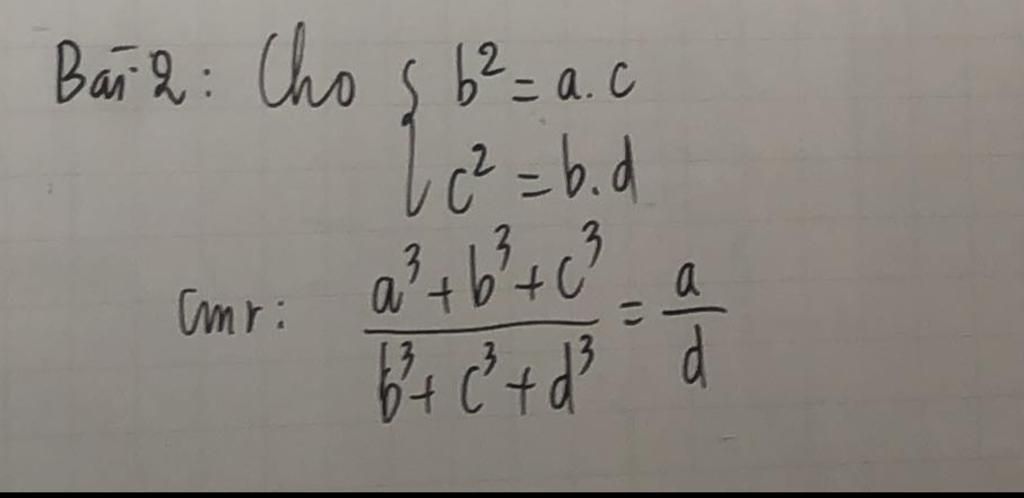 Bài 2: Cho { b² = a.c
c² = b.d
Cmr: (a³ + b³ + c³)/(b³ + c³ + d³) = a/d